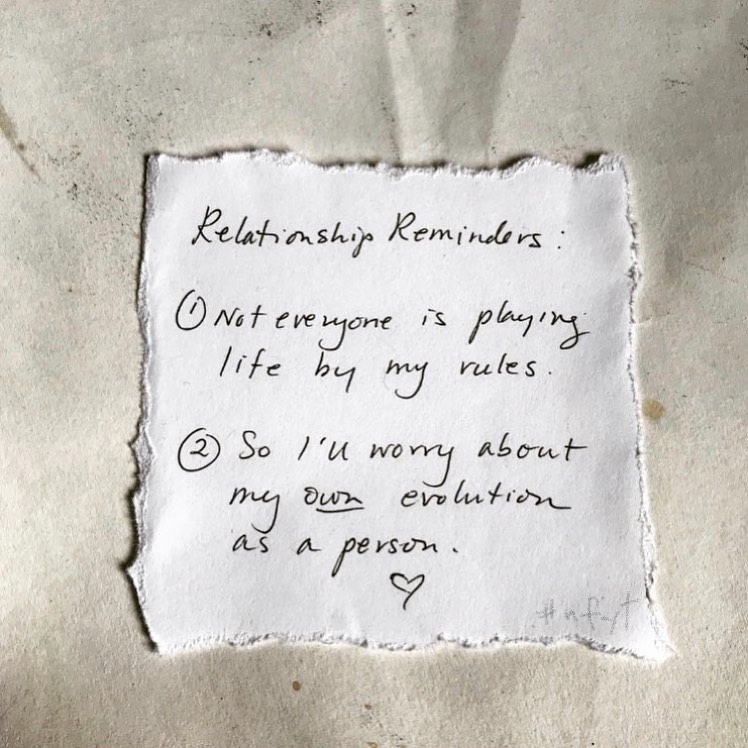 Relationship Reminders:
① Not everyone is playing
life by my rules.
② So I'll worry about
my own evolution
as a person.
♡